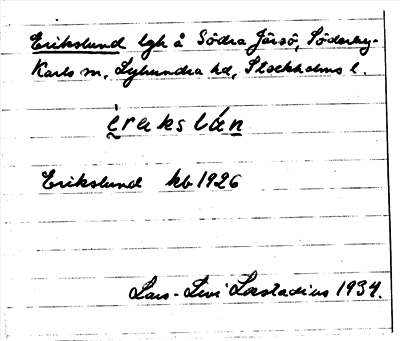 Erikslund lgh å Södra Järsö, Söderby-
Karls sn, Lyhundra hd, Stockholms l.
èrakslán
Erikslund kb 1926
Lars-Levi Læstadius 1934.